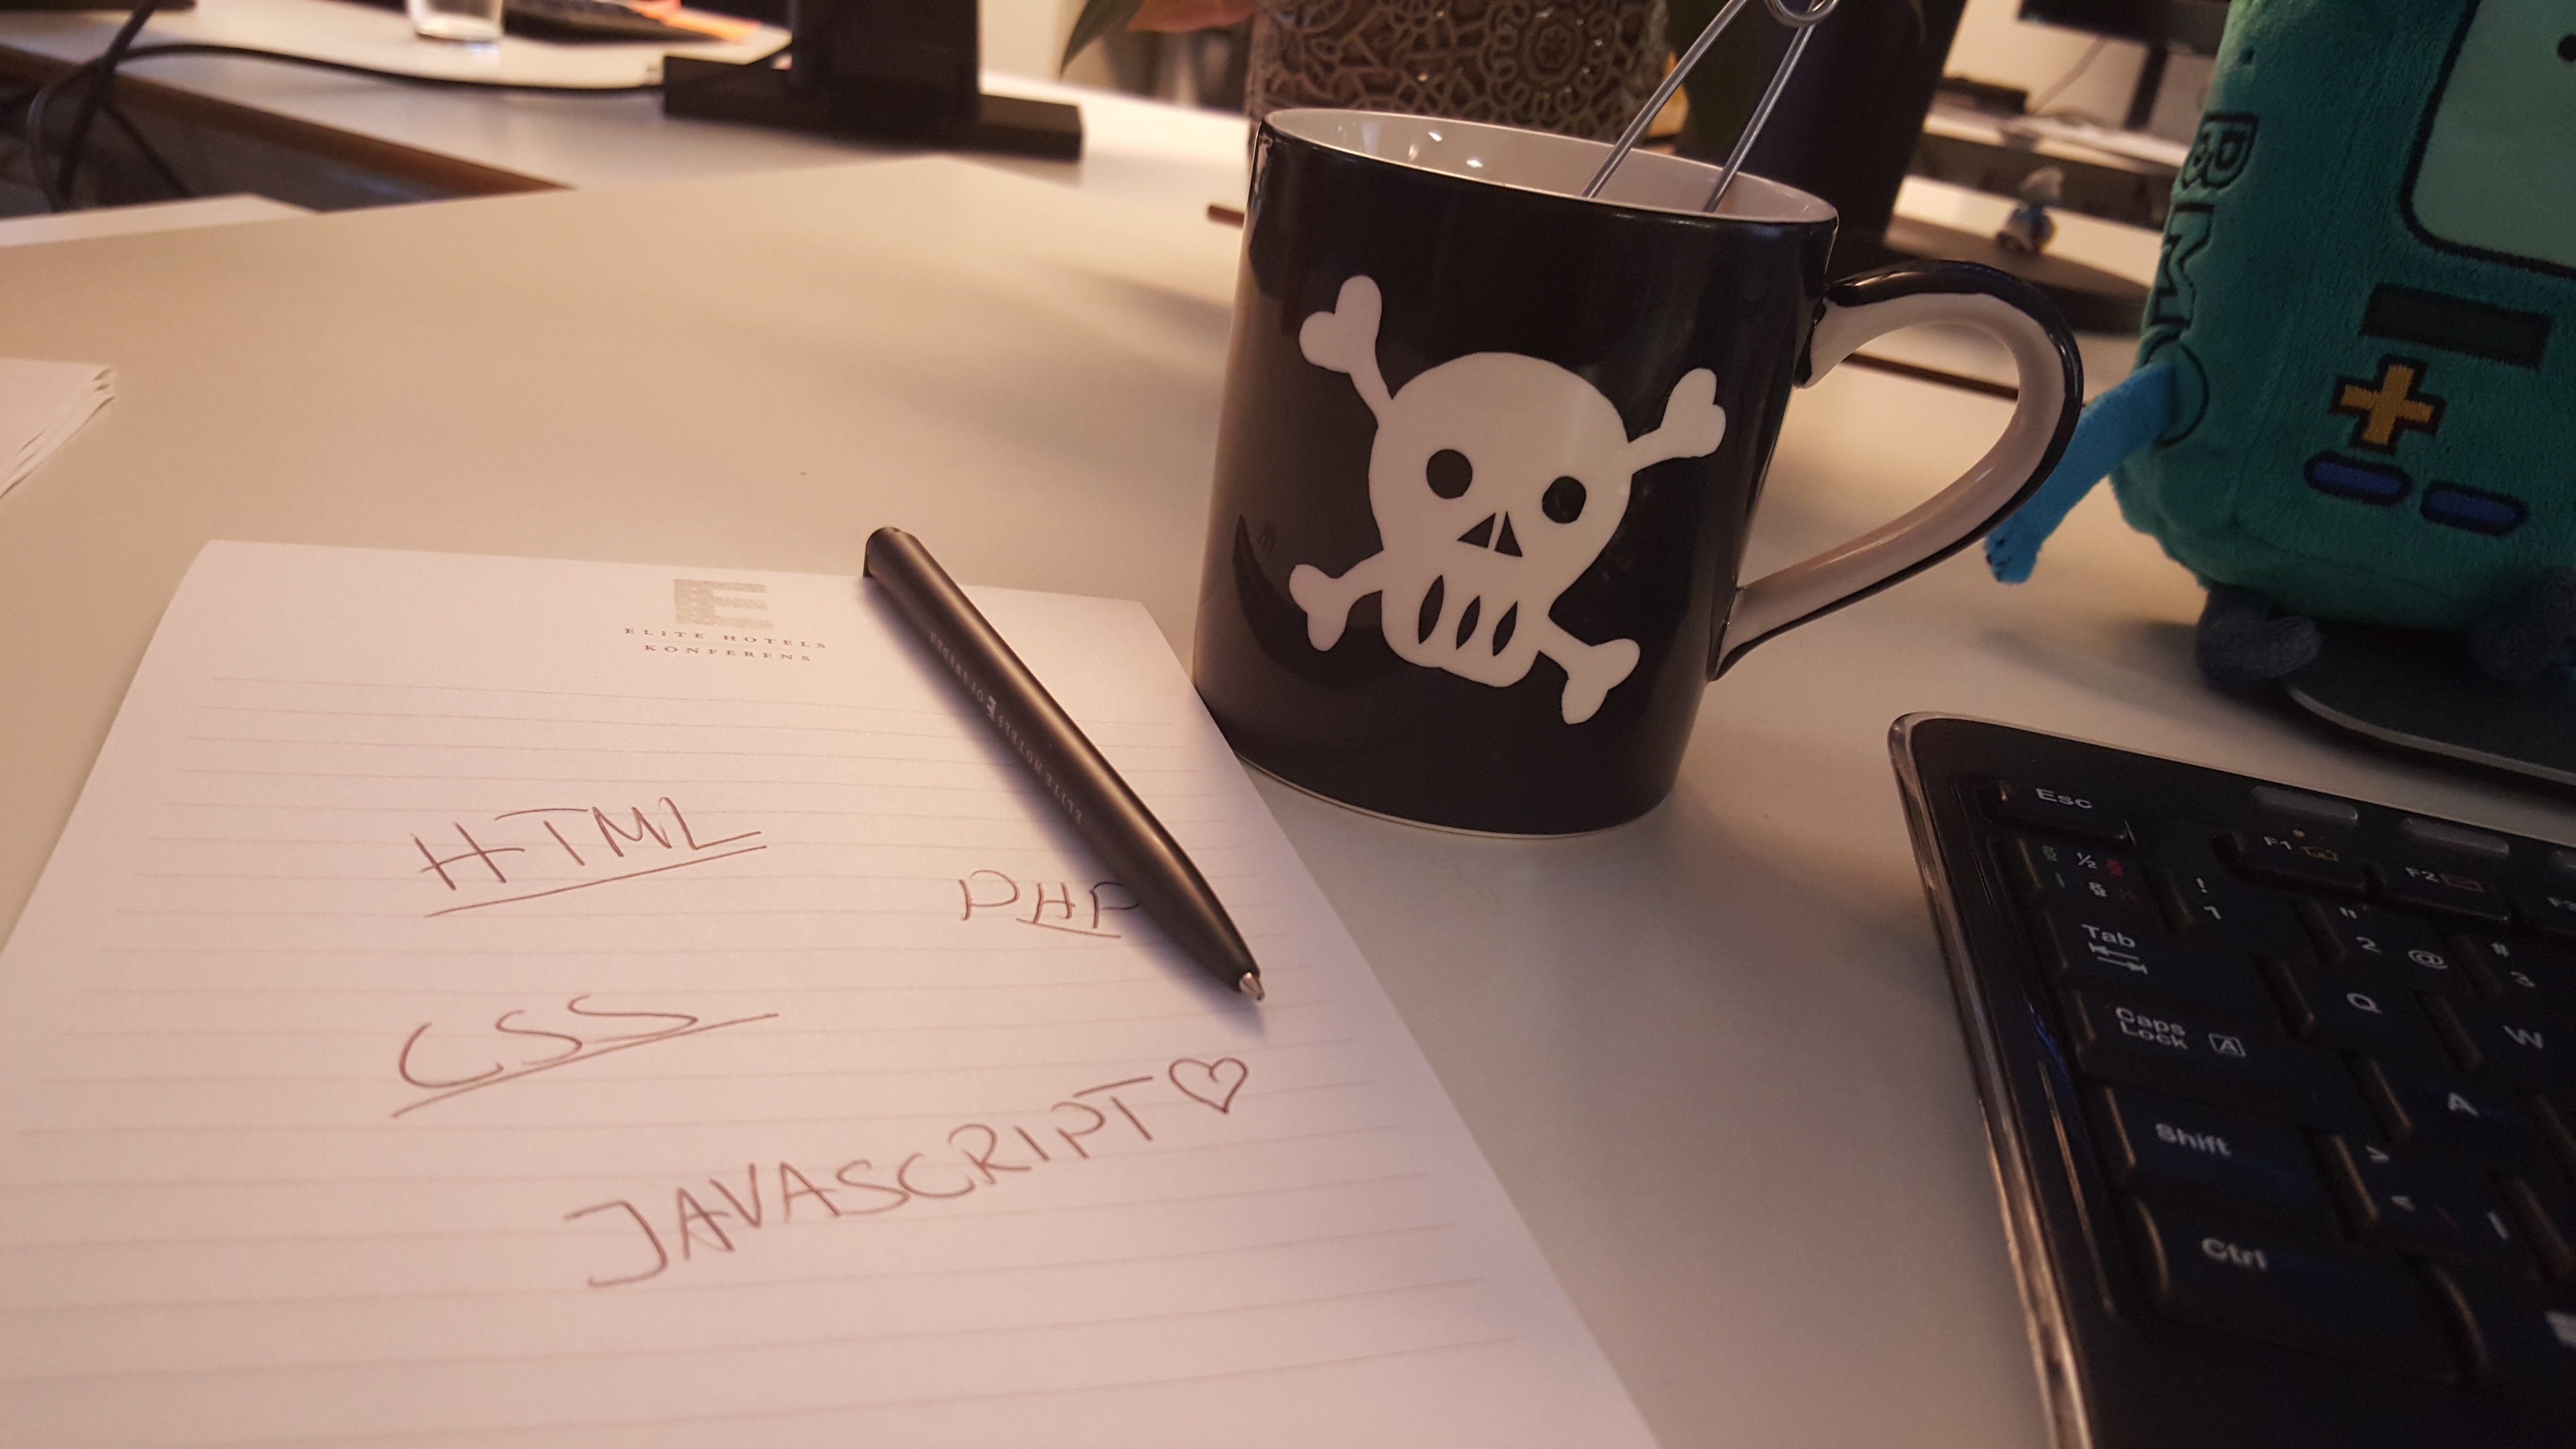 ELITE HOTELS
KONFERENS
HTML
PHP
CSS
JAVASCRIPT♡
ELITE HOTELS
BMO
Esc
F1
F2
F3
½
§
!
1
"
2 @
#
3
Tab
Q
W
Caps
Lock A
A
Shift
>
< |
Ctrl